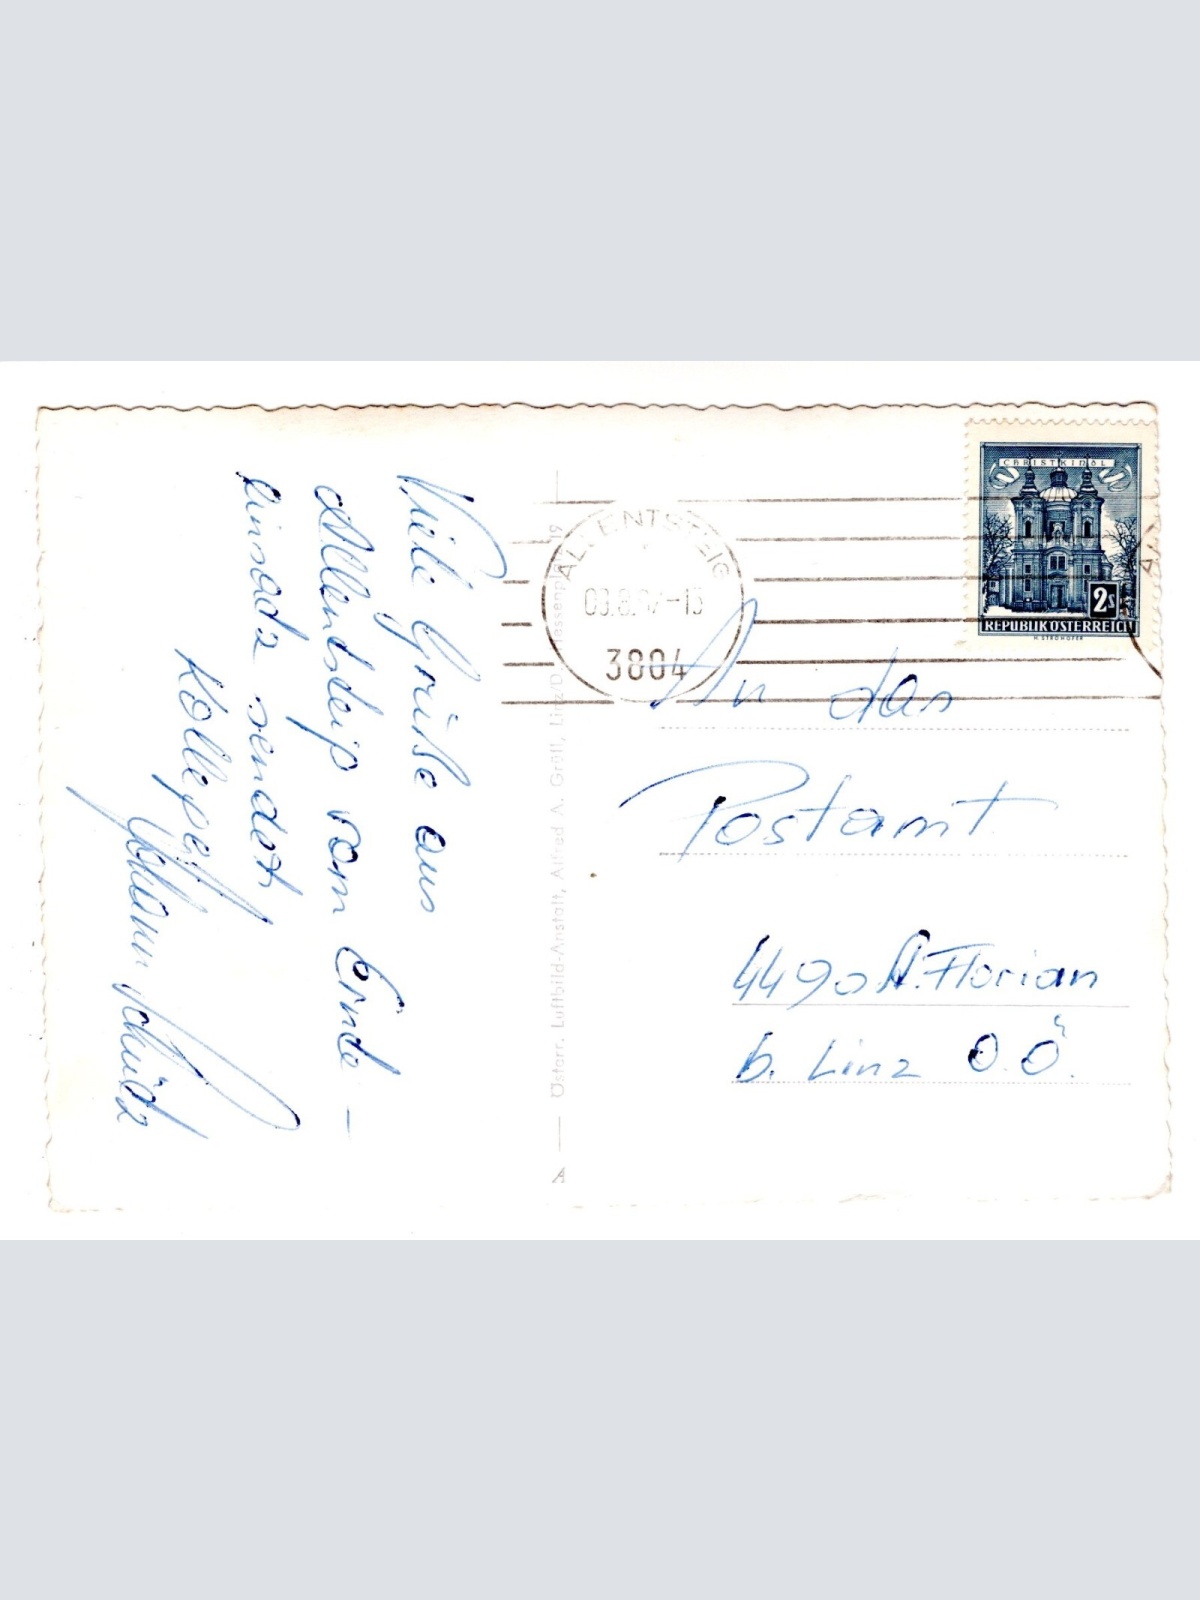 Viele Grüße aus
Allentsteig vom Ernte -
einsatz sendet
Kollege
Johann Schütz
Österr. Luftbild-Anstalt, Alfred A. Gröll, Linz/D.
ALLENTSTEIG
3804
CHRISTKINDL
2s
REPUBLIK ÖSTERREICH
An das
Postamt
4490 St. Florian
b. Linz O.Ö.